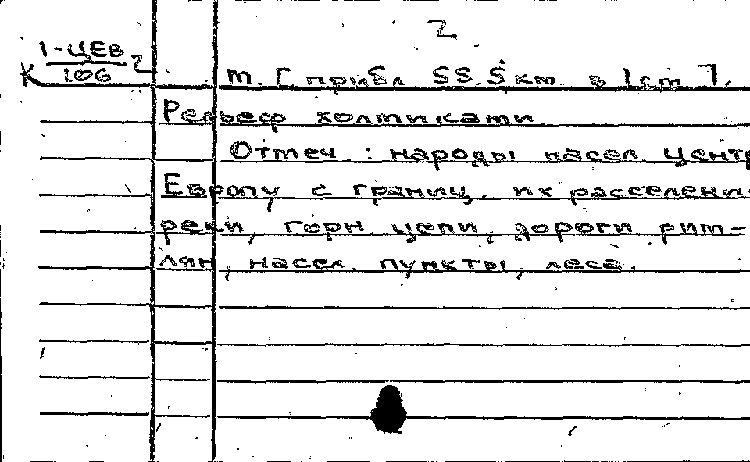 2
К 1-ЦЕВ/106 2
т. [прибл 55.5 км в 1 см].
Рельеф холмиками
Отмеч: народы насел Центр
Европу с границ. их расселения
реки, горн цепи, дороги рим-
лян, насел. пункты, леса.